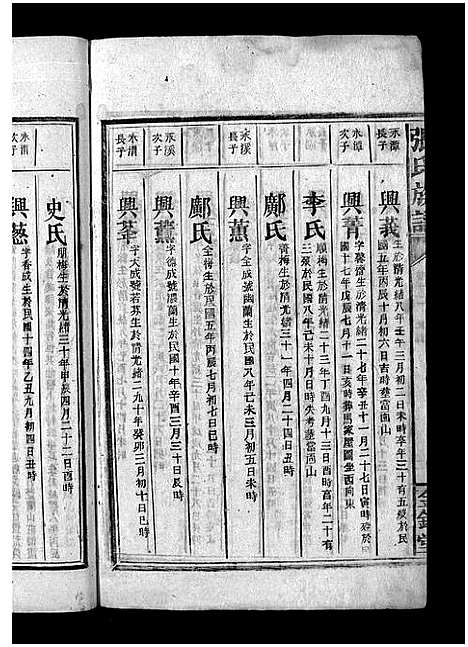 張氏族譜
永潭長子
興義
生於清光緒八年壬午三月初二日未時卒年三十有五歿於民
國五年丙辰十月初六日吉時葬當面山
永潭次子
興菁
字馨齋生於清光緒二十七年辛丑十一月二十七日寅時歿於民
國十七年戊辰七月十一日亥時葬熊家屋圖坐西向東
李氏
順梅生於清光緒二十三年丁酉九月十三日酉時富年二十有
三歿於民國八年己未十月日時失考葬當面山
鄺氏
青梅生於清光緒三十一年四月二十四日丑時
永溪長子
興蕙
字全成號幽蘭生於民國八年己未三月初五日未時
鄺氏
全梅生於民國五年丙辰七月初七日巳時
永溪次子
興薰
字德成號濃蘭生於民國十年辛酉三月三十日辰時
永清長子
興峯
字天成號若芬生於清光緒二十九年癸卯三月初十日巳時
史氏
朋梅生於清光緒三十年甲辰四月二十二日酉時
永清次子
興慈
字香成生於民國十四年乙丑九月初四日丑時